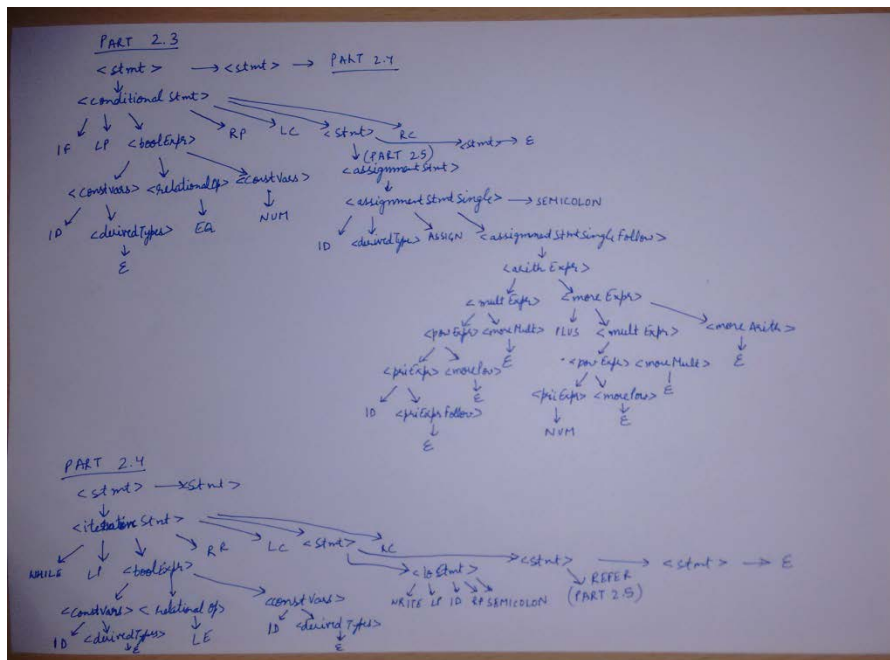 PART 2.3
<stmt> → <stmt> → PART 2.4
<conditional Stmt>
IF LP <boolExpr> RP LC <stmt> RC
<stmt> → ε
(PART 2.5)
<assignmentStmt>
<constVars> <relationalOp> <constVars>
<assignmentStmtSingle> → SEMICOLON
ID <derivedTypes> EQ NUM
ID <derivedType> ASSIGN <assignmentStmtSingleFollow>
ε
<arithExpr>
<multExpr> <moreExpr>
<powExpr> <moreMult> PLUS <multExpr> <moreArith>
<priExpr> <morePow> ε <powExpr> <moreMult> ε
ID <priExprFollow> ε <priExpr> <morePow> ε
ε NUM ε
PART 2.4
<stmt> → <stmt>
<iterativeStmt>
WHILE LP <boolExpr> RR LC <stmt> RC
<ioStmt> <stmt> → <stmt> → ε
WRITE LP ID RP SEMICOLON REFER
(PART 2.5)
<constVars> <relationalOp> <constVars>
ID <derivedTypes> LE ID <derivedTypes>
ε ε